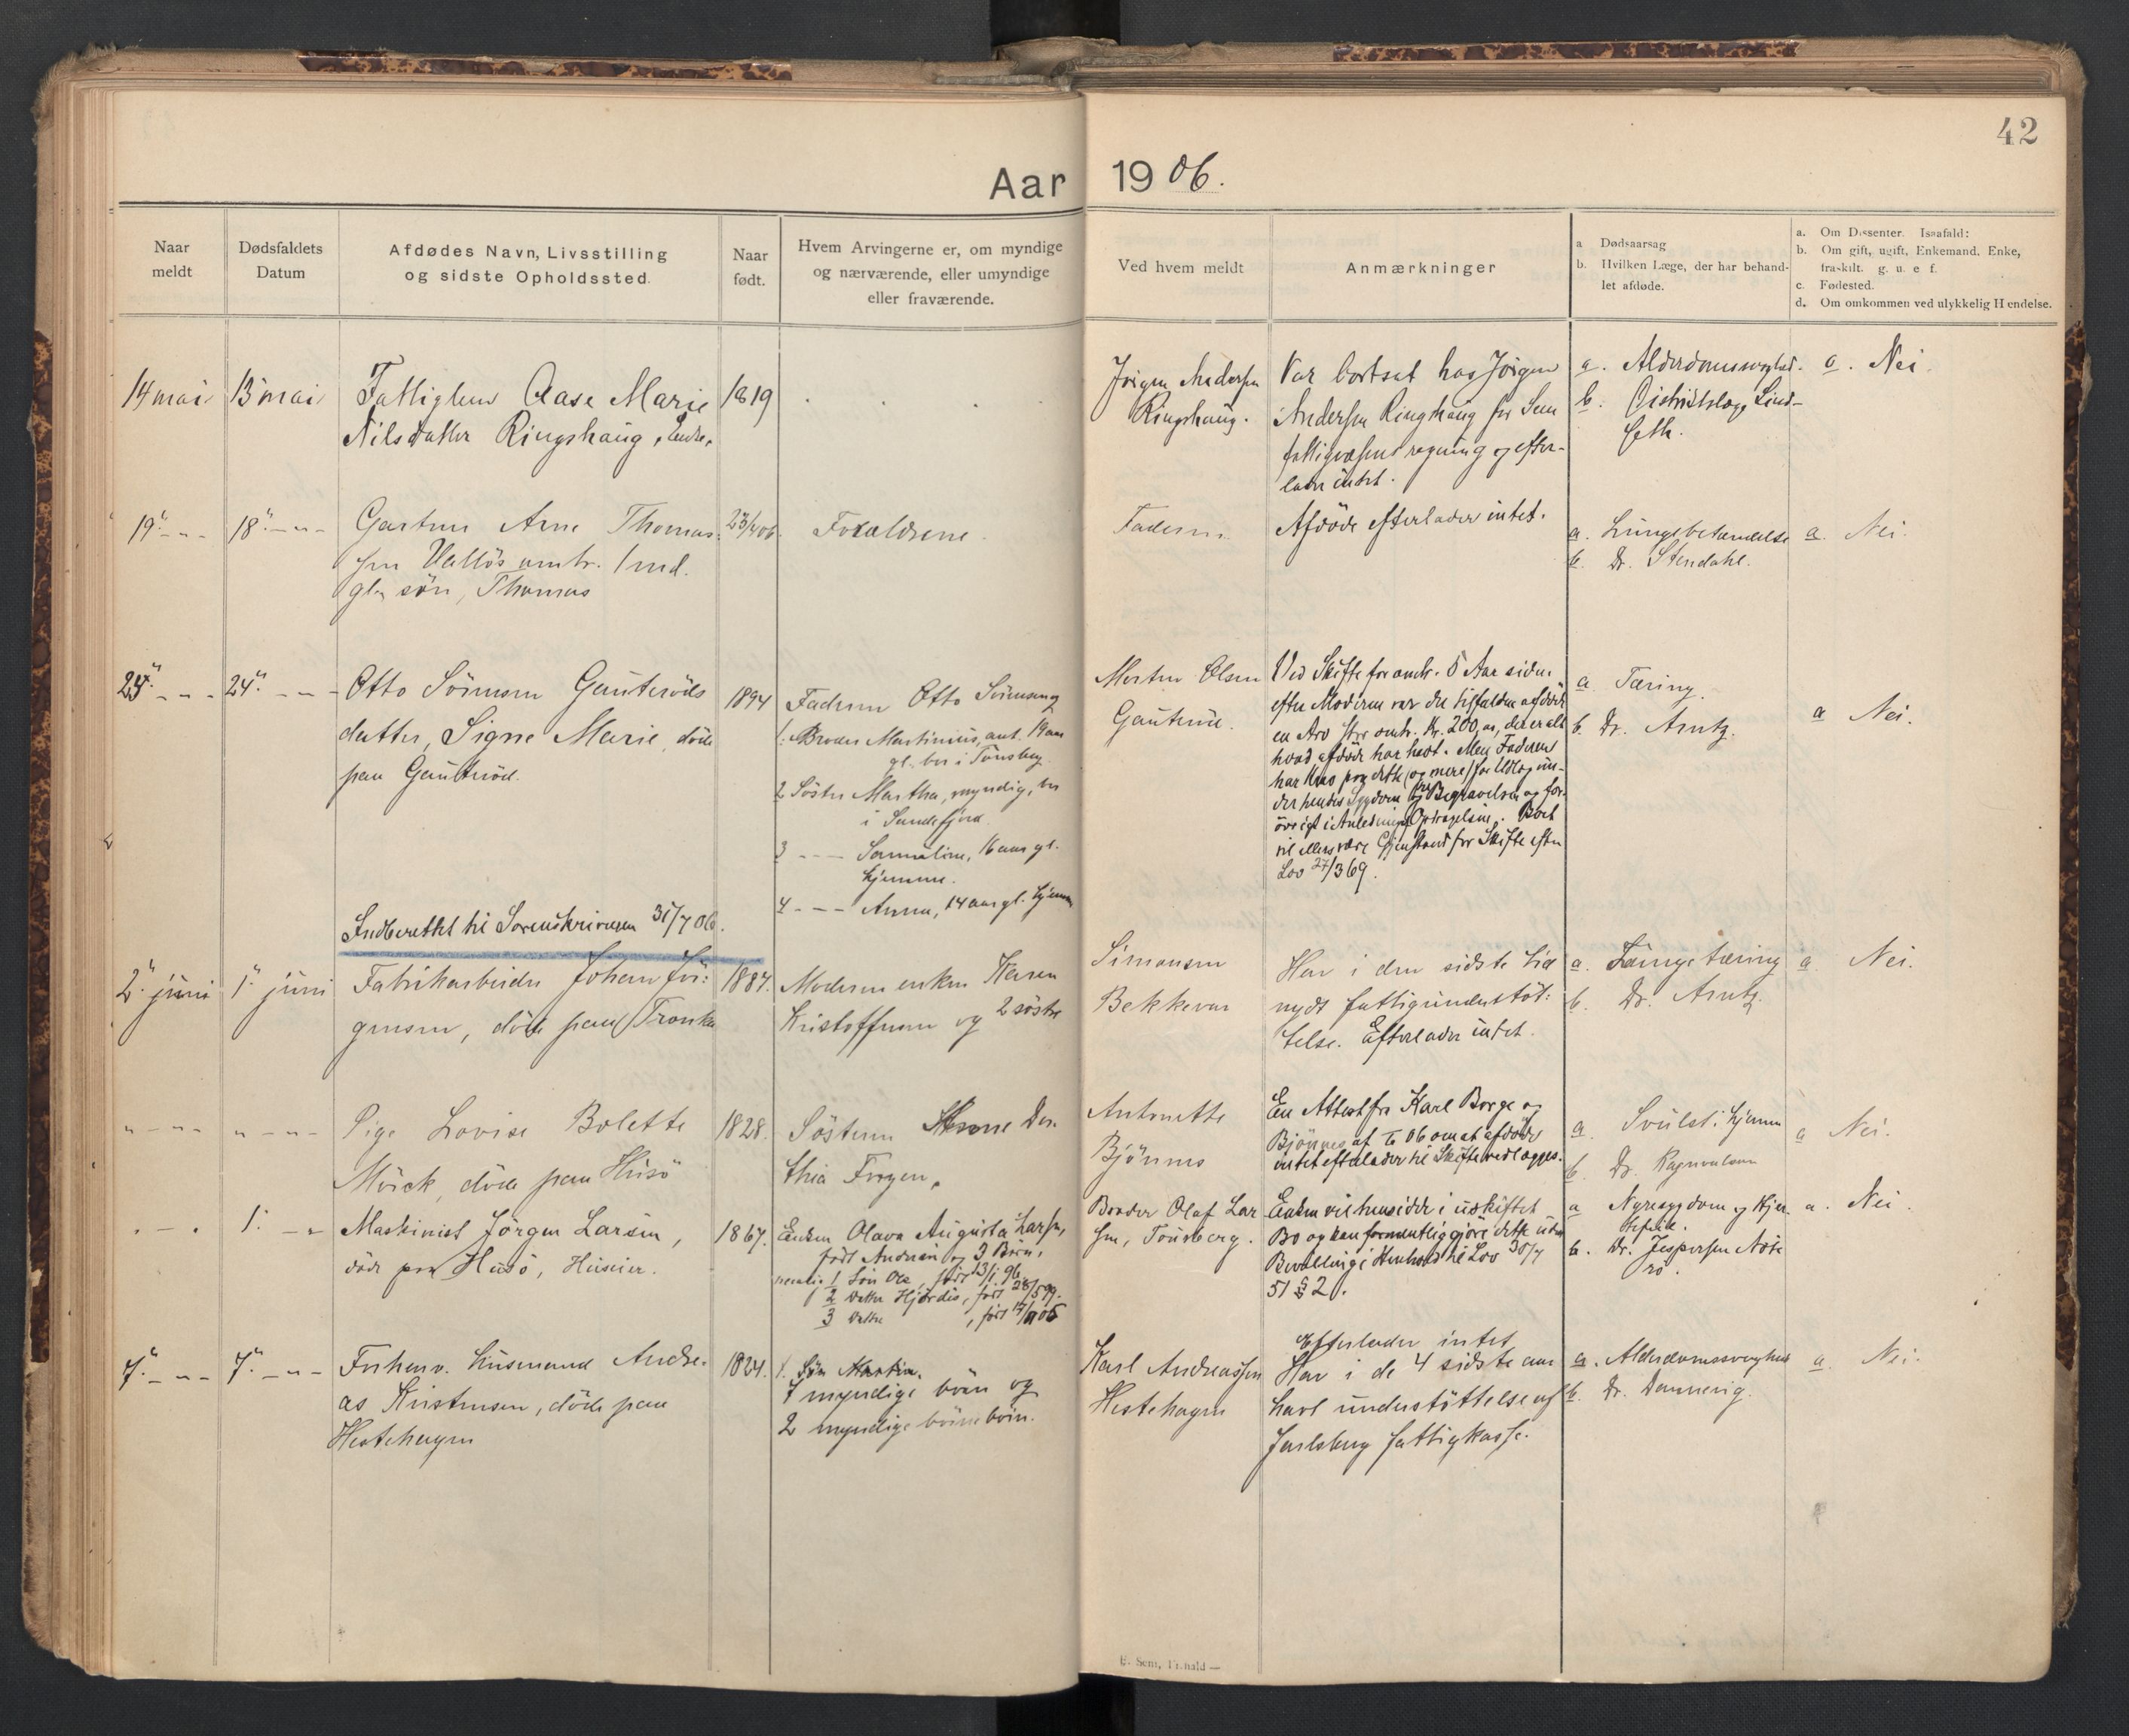 42
Aar 1906.
Naar
meldt
Dødsfaldets
Datum
Afdødes Navn, Livsstilling
og sidste Opholdssted.
Naar
født.
Hvem Arvingerne er, om myndige
og nærværende, eller umyndige
eller fraværende.
Ved hvem meldt
Anmærkninger
a Dødsaarsag
b. Hvilken Læge, der har behand-
let afdøde.
a. Om Dissenter. Isaafald:
b. Om gift, ugift, Enkemand, Enke,
fraskilt. g. u. e f.
c. Fødested.
d. Om omkommen ved ulykkelig Hendelse.
14 mai
13 mai
Fattiglem Aase Marie
Nilsdatter Ringshaug, Enke,
1819
Jörgen Andersen
Ringshaug.
Var bortsat hos Jörgen
Andersen Ringshaug for Sem
fattigvæsens regning og efter-
lader intet.
a. Alderdomssvaghed.
b. Distriktslæge Lind-
seth.
a. Nei.
19. - " -
18. - " -
Gartner Arne Thomas-
sen Valløs omtr. 1 md.
gl. sön, Thomas
23/4 06.
Forældrene.
Faderen.
Afdöde efterlader intet.
a. Lungebetændelse
b. Dr. Stendahl.
a. Nei.
25. - " -
24. - - -
Otto Sörensen Gauteröds
datter, Signe Marie, döde
paa Gauteröd.
1894
Faderen Otto Sörensen og
1. Broder Martinius, ant. 19 aar
gl. bor i Tönsberg.
2 Söster Martha, myndig, bor
i Sandefjord.
3 - - - 16 aar gl.
hjemme.
4 - - - Anna, 14 aar gl. hjemme
Indberettet til Sorenskriveren 31/7 06.
Morten Olsen
Gauteröd.
Ved Skifte for omtr. 5 Aar siden
efter Moderen var der tilfalden afdöde
en Arv stor omtr. Kr. 200,00, det er alt
hvad afdöde har havt. Men Faderen
har Krav paa dette (og mere) for Udlæg un-
der hendes Sygdom og Begravelsen og for-
övrigt i Anledning Opdragelsen. Boet
vil ellers være Gjenstand for Skifte efter
Lov 27/3 69.
a Tæring.
b. Dr. Arntz.
a Nei.
2. juni
1. juni
Fabrikarbeider Johan Jör-
gensen, döde paa Tronka
1884.
Moderen enken Karen
Kristoffersen og 2 söstre
Simonsen
Bekkevar
Har i den sidste tid
nydt fattigunderstöt-
telse. Efterlader intet.
a. Lungetæring
b. Dr. Arntz.
a Nei.
" - " -
" - " -
Pige Lovise Bolette
Mörck, döde paa Husö
1828.
Sösteren Hanne Doro-
thia Forgen.
Antonette
Björnnes
En Attest fra Karl Borge og
Björnnes af 06 om at afdöde
intet efterlader til Skifte vedlægges.
a. Svulst i hjernen
b. Dr. Ragnvaldsen
a Nei.
- " -
1. - "
Maskinist Jörgen Larsen,
döde paa Husö, Huseier.
1867.
Enken Olava Augusta Larsen,
född Andersen og 3 Börn,
nemlig 1 Sön Ole, född 13/1. 96
2 Datter Hjördis, född 28/5 99.
3 Datter , född 17/11 05
Broder Olaf Lar-
sen, Tönsberg.
Enken vil hensidde i uskiftet
Bo og kan formentlig gjöre dette uden
Bevilling i Henhold til Lov 30/7
51 § 2.
a Nyresygdom og Hjer-
tefeil.
b. Dr. Jespersen Nöte-
rö.
a. Nei.
7. - " -
7. - " -
Forhenv. husmand Andre-
as Kristensen, döde paa
Hestehagen
1824.
1. Sön Martin.
7 myndige börn og
2 myndige börnebörn.
Karl Andreassen
Hestehagen
Efterlader intet
Har i de 4 sidste aar
havt understöttelse af
Jarlsberg fattigkasse.
a. Alderdomssvaghed
b. Dr. Dannevig.
a. Nei.